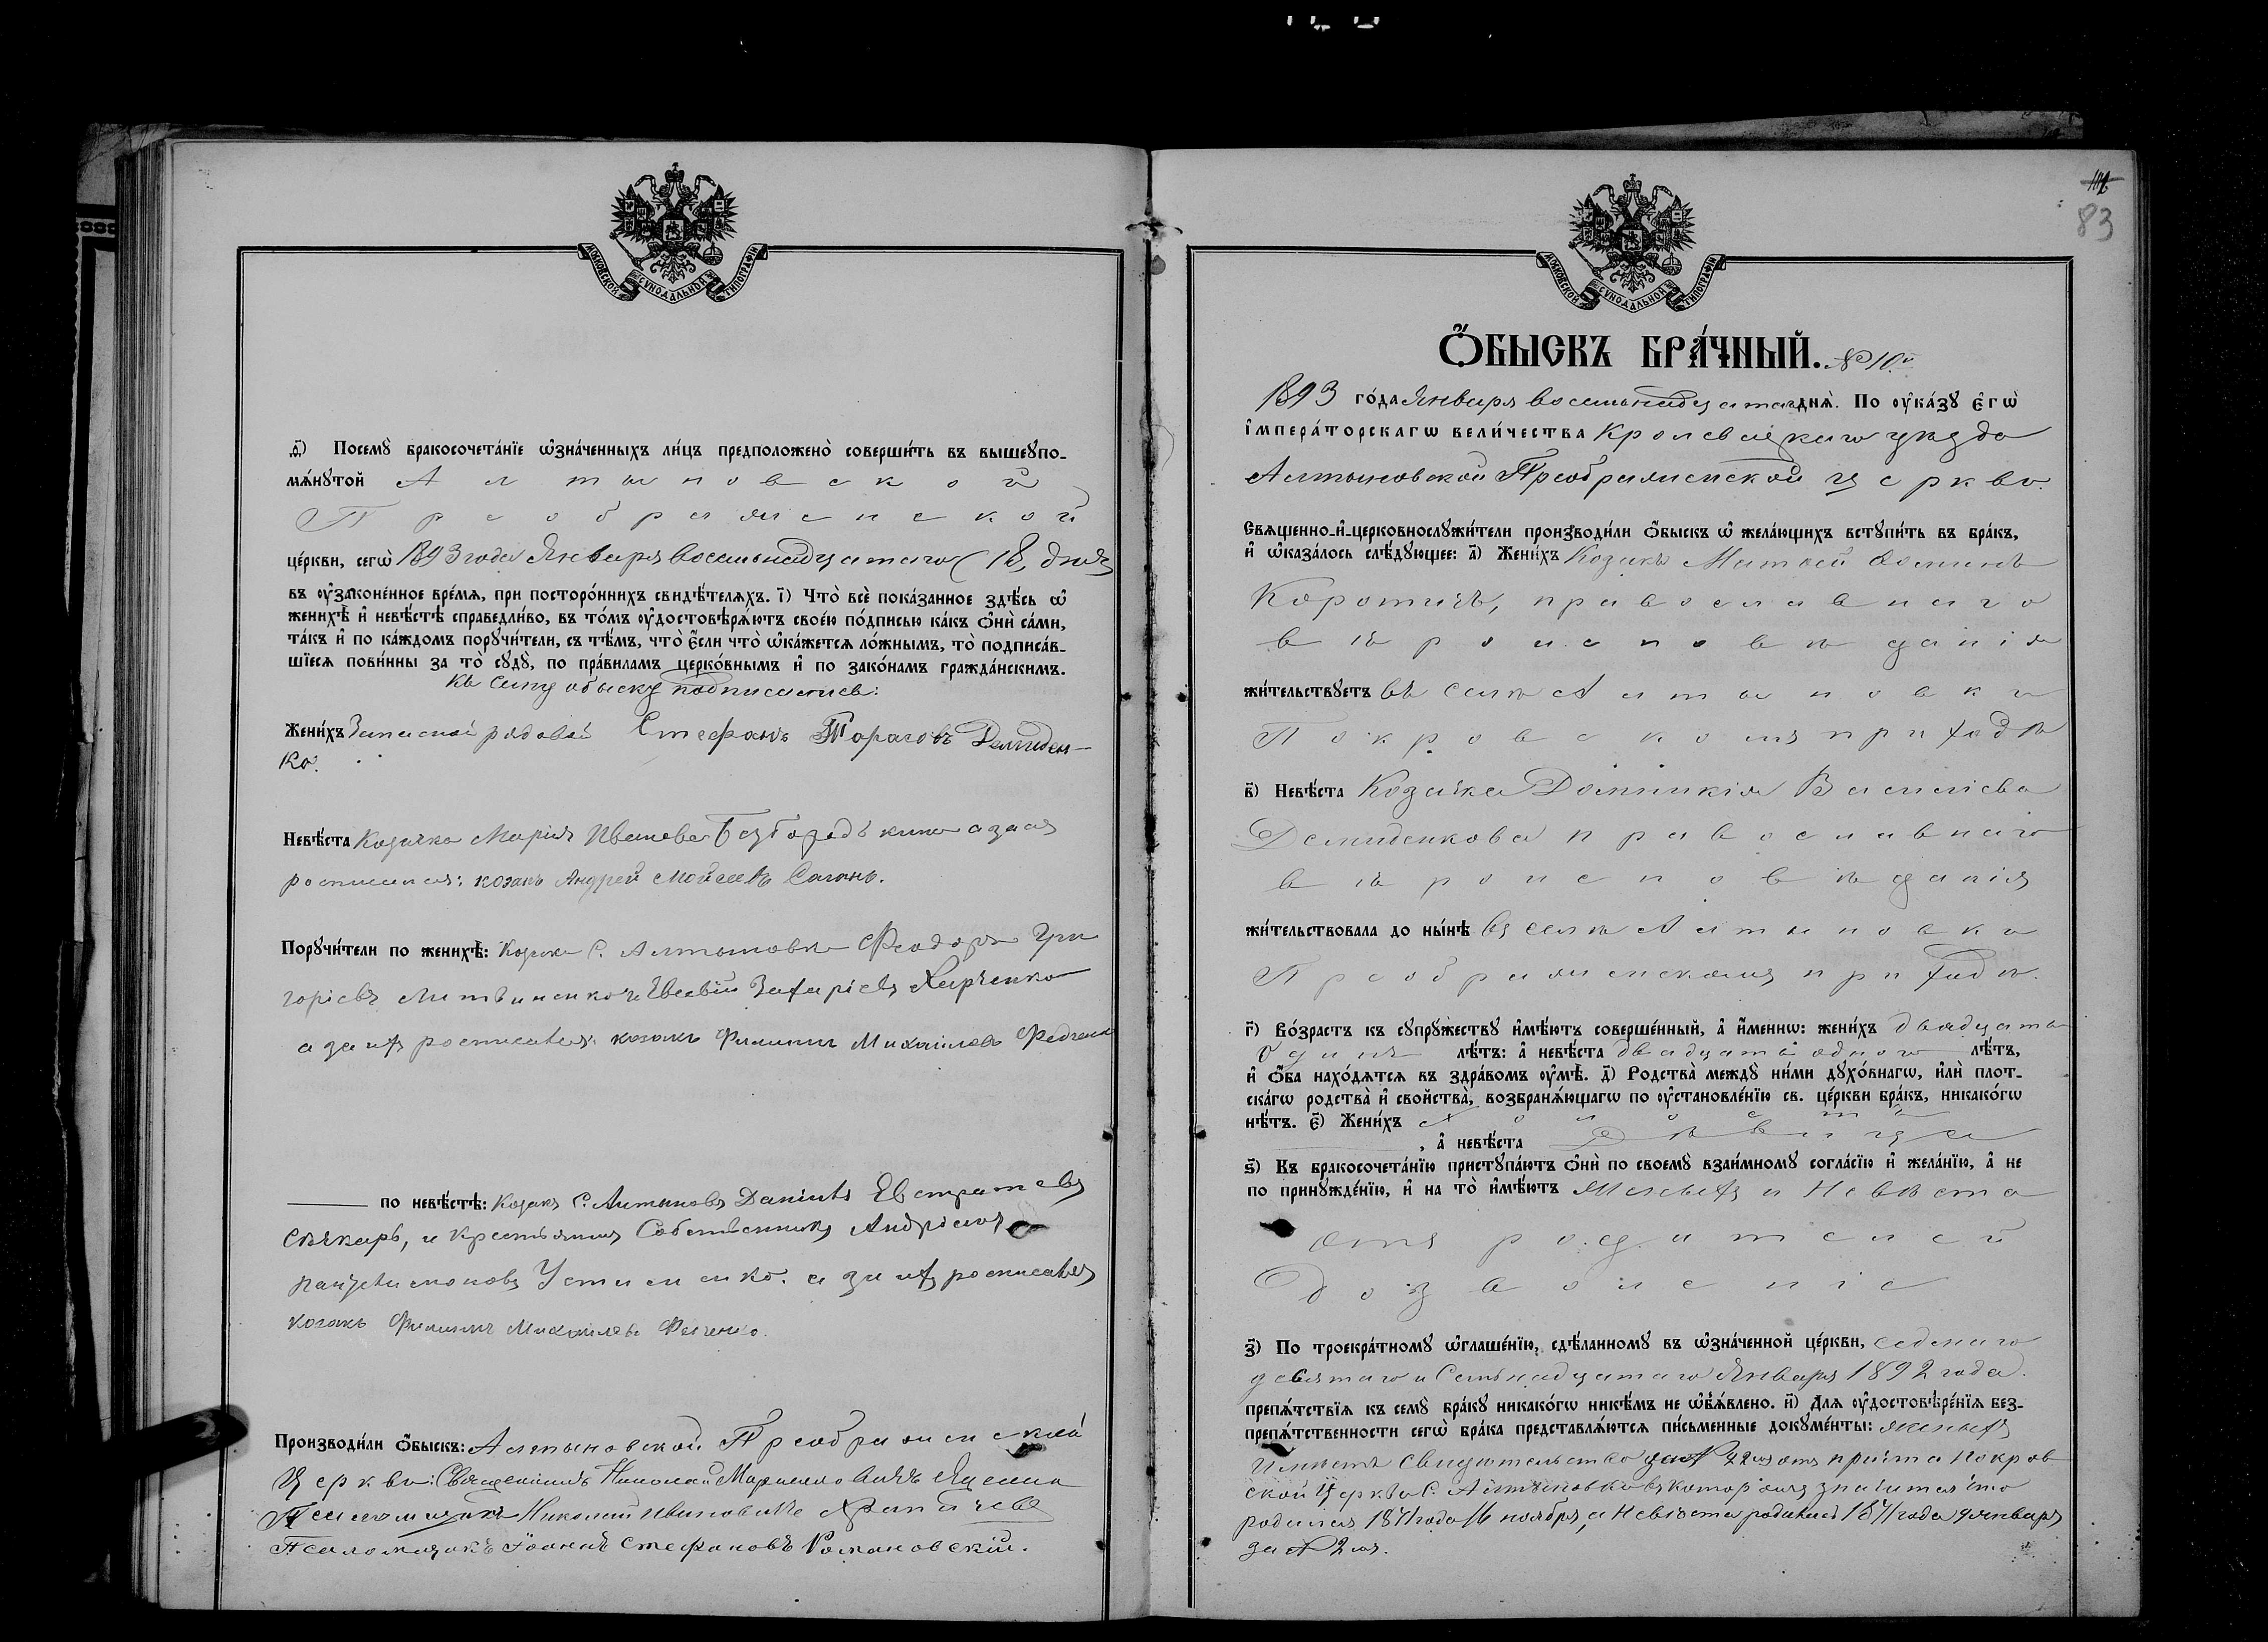 МОСКОВСКОЙ СѴНОДАЛЬНОЙ ТИПОГРАФІИ
д҃) Посемꙋ̀ бракосочета́нїе ѡ҆зна́ченныхъ ли́цъ предположено̀ соверши́ть въ вышеꙋпо-
мѧ́нꙋтой Алтыновской
Преображенской
це́ркви, сегѡ̀ 1893 года Января восемьнадцатаго (18) дня
въ ᲂу҆зако́ненное вре́мѧ, при посторо́ннихъ свидѣ́телѧхъ. і҃) Что̀ всѐ пока́занное здѣ́сь ѡ҆
женихѣ̀ и҆ невѣ́стѣ справедли́во, въ то́мъ ᲂу҆достовѣрѧ́ютъ свое́ю по́дписью ка́къ ѻ҆нѝ са́ми,
та́къ и҆ по ка́ждомъ порꙋчи́тели, съ тѣ́мъ, что̀ є҆́сли что̀ ѡ҆ка́жетсѧ ло́жнымъ, то̀ подписа́в-
шїесѧ пови́нны за то̀ сꙋдꙋ̀, по пра́виламъ церко́внымъ и҆ по зако́намъ гражда́нскимъ.
къ сему обыску подписались:
Жени́хъ Запасной рядовой Стефанъ Тарасовъ Демиден-
ко.
Невѣ́ста Козачка Марія Иванова а за ея
росписался: козакъ Андрей Моисеевъ Саганъ.
Порꙋчи́тели по женихѣ̀: Козаки С. Алтыновки Феодоръ Гри
горіевъ Литвиненко и Евсевій Захаріевъ Харченко
а за ихъ росписался козакъ Филиппъ Михайловъ Федченко
по невѣ́стѣ: Козакъ С. Алтыновки Даніилъ Евстратіевъ
и крестьянинъ Собственникъ Андрей
Пантелимоновъ Устименко. а за ихъ росписался
козакъ Филиппъ Михайловъ Федченко.
Производи́ли ѻ҆́быскъ: Алтыновской Преображенской
Церкви: Священникъ Николай
Псаломщикъ Николай Ивановичъ
Псаломщикъ Іоаннъ Стефановъ Романовскій.
83
МОСКОВСКОЙ СѴНОДАЛЬНОЙ ТИПОГРАФІИ
Ѻ҆́БЫСКЪ БРА́ЧНЫЙ. №10й
1893 го́да Января восемьнадцатаго днѧ̀. По ᲂу҆ка́зꙋ є҆гѡ̀
і҆мпера́торскагѡ вели́чества Кролевецкаго уѣзда
Алтыновской Преображенской церкви.
Свѧще́нно-и҆-церковнослꙋжи́тели производи́ли ѻ҆́быскъ ѡ҆ жела́ющихъ встꙋпи́ть въ бра́къ,
и҆ ѡ҆каза́лось слѣ́дꙋющее: а҃) Жени́хъ Козакъ Матфей Фоминъ
Коротичъ, православнаго
вѣроисповѣданія
жи́тельствꙋетъ въ селѣ Алтыновки
Покровскомъ приходѣ
в҃) Невѣ́ста Козачка Домникія Василіева
Демиденкова православнаго
вѣроисповѣданія
жи́тельствовала до ны́нѣ въ селѣ Алтыновки
Преображенскомъ приходѣ.
г҃) Во́зрастъ къ сꙋпрꙋ́жествꙋ и҆мѣ́ютъ соверше́нный, а҆ и҆́меннѡ: жени́хъ двадцать
одинъ лѣ́тъ: а҆ невѣ́ста двадцать одного лѣ́тъ,
и҆ ѻ҆́ба нахо́дѧтсѧ въ здра́вомъ ᲂу҆мѣ̀. д҃) Родства̀ междꙋ̀ ни́ми дꙋхо́внагѡ, и҆лѝ плот-
ска́гѡ родства̀ и҆ свойства̀, возбранѧ́ющагѡ по ᲂу҆становле́нїю св. це́ркви бра́къ, никако́гѡ
нѣ́тъ. є҃) Жени́хъ Холостъ
, а҆ невѣ́ста Дѣвица
ѕ҃) Къ бракосочета́нїю пристꙋпа́ютъ ѻ҆нѝ по своемꙋ̀ взаи́мномꙋ согла́сїю и҆ жела́нїю, а҆ не
по принꙋжде́нїю, и҆ на то̀ и҆мѣ́ютъ Женихъ и Невѣста
отъ родителей
дозволеніе
з҃) По троекра́тномꙋ ѡ҆глаше́нїю, сдѣ́ланномꙋ въ ѡ҆зна́ченной це́ркви, седьмаго
девятаго и Семьнадцатаго Января 1892 года.
препѧ́тствїѧ къ семꙋ̀ бра́кꙋ никако́гѡ никѣ́мъ не ѡ҆б̾ѧ́влено. и҃) Длѧ ᲂу҆достовѣре́нїѧ без-
препѧ́тственности сегѡ̀ бра́ка представлѧ́ютсѧ пи́сьменные докꙋме́нты: женихъ
Имѣетъ Свидѣтельство за № 22мъ отъ причта Покров
ской Церкви С. Алтыновки въ которомъ значится что
родился 1871 года 16 ноября, а Невѣста родилась 1871 года января
за № 2мъ.